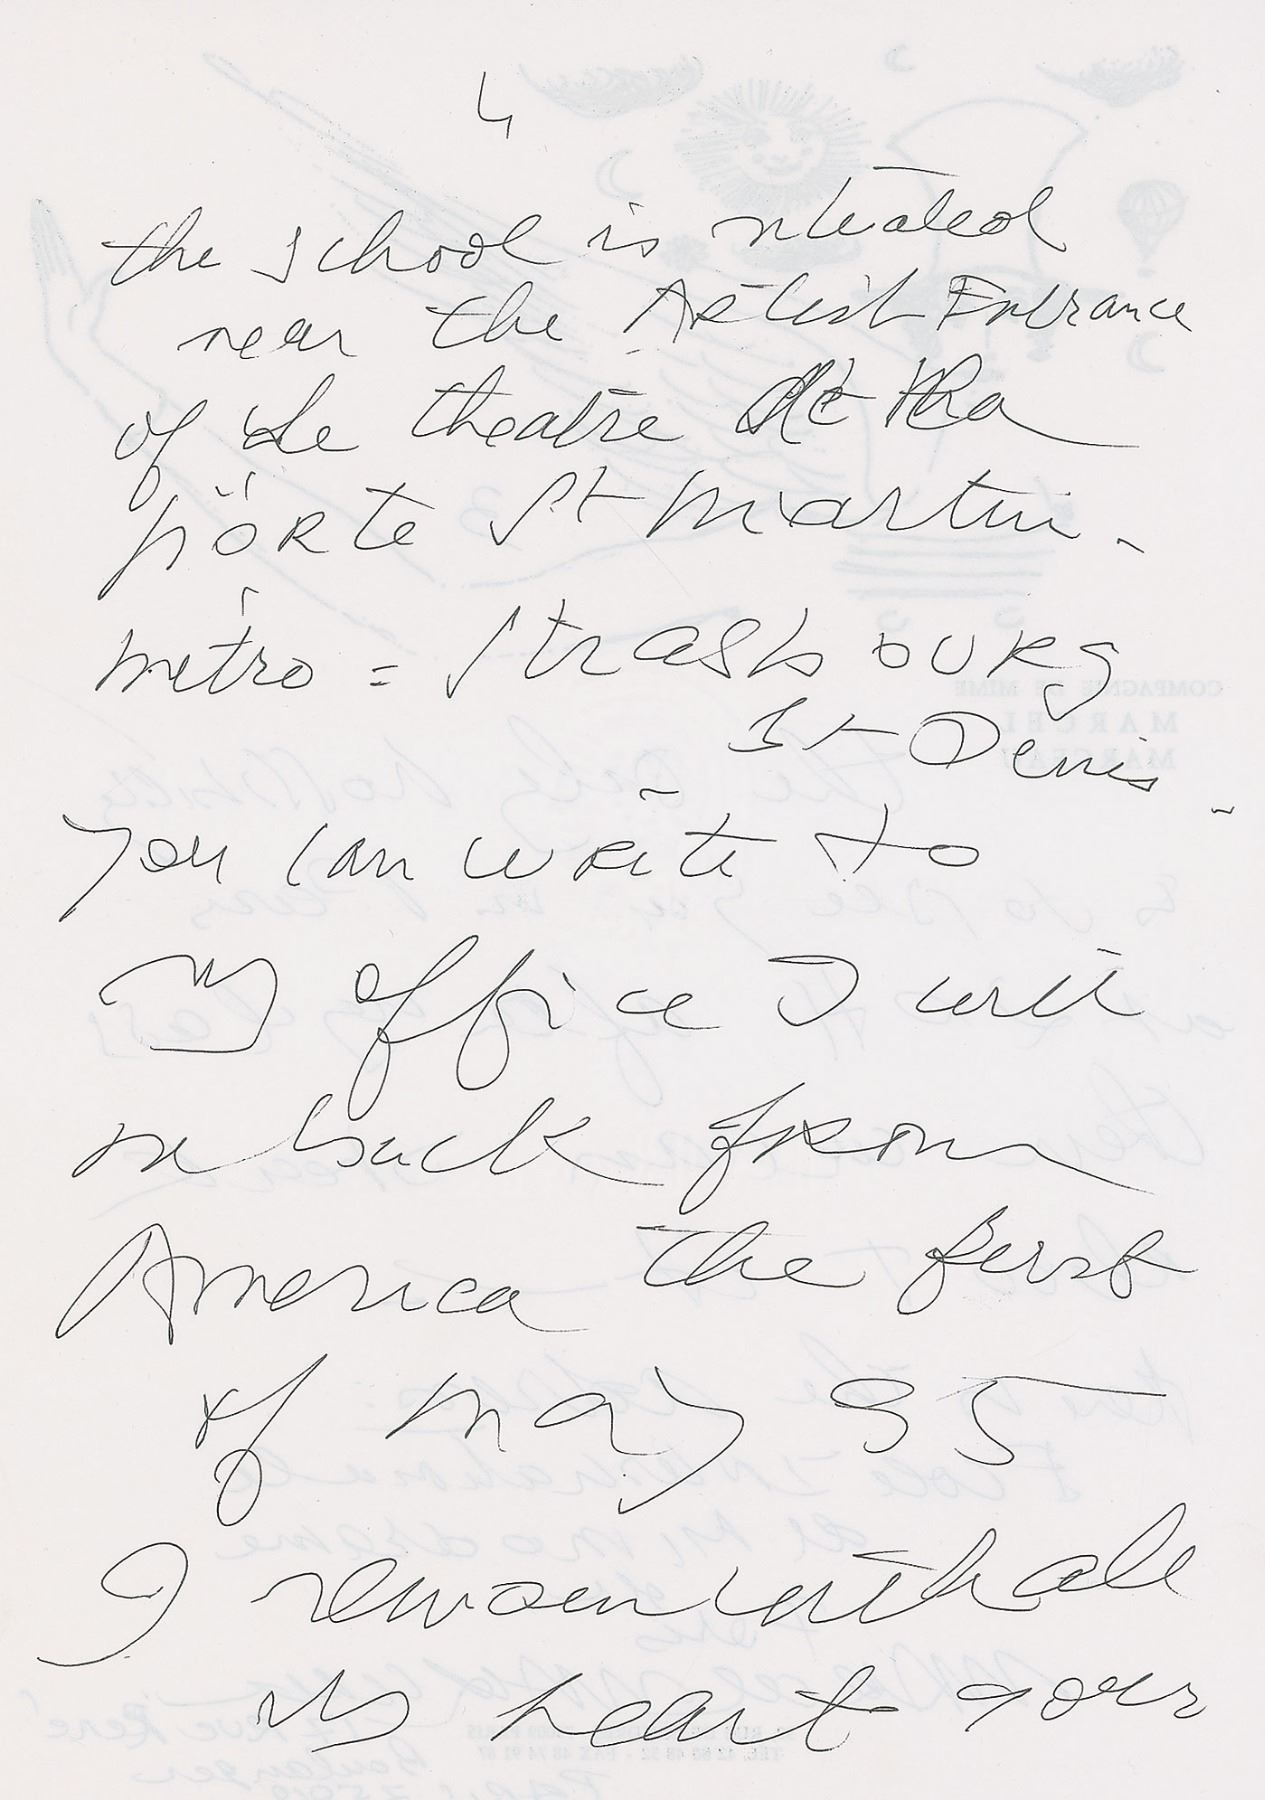 4
the school is situated
near the Artist Entrance
of the theatre de la
porte St Martin.
métro = Strasbourg
St Denis -
you can write to
my office I will
be back from
America the first
of may 95
I remain with all
my heart yours
COMPAGNIE DE MIME
MARCEL
MARCEAU